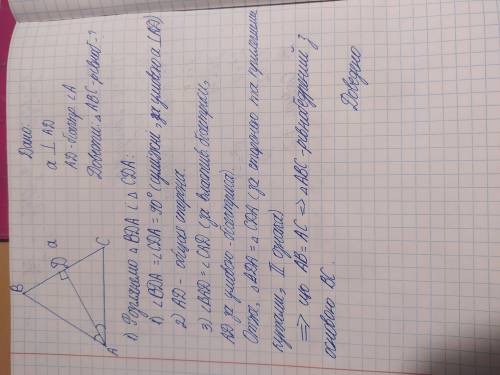 B
D
a
A
C
Дано:
a ⊥ AD
AD - бісектр. ∠A
Довести: △ABC - рівноб - ?
1) Розглянемо △BDA і △CDA:
1) ∠BDA = ∠CDA = 90° (суміжні, за умовою a ⊥ AD)
2) AD - спільна сторона.
3) ∠BAD = ∠CAD (за власт. бісектриси,
AD за умовою - бісектриса)
Отже, △BDA = △CDA (за стороною та прилеглими
кутами, II ознака)
=> що AB = AC => △ABC - рівнобедрений з
основою BC.
Доведено